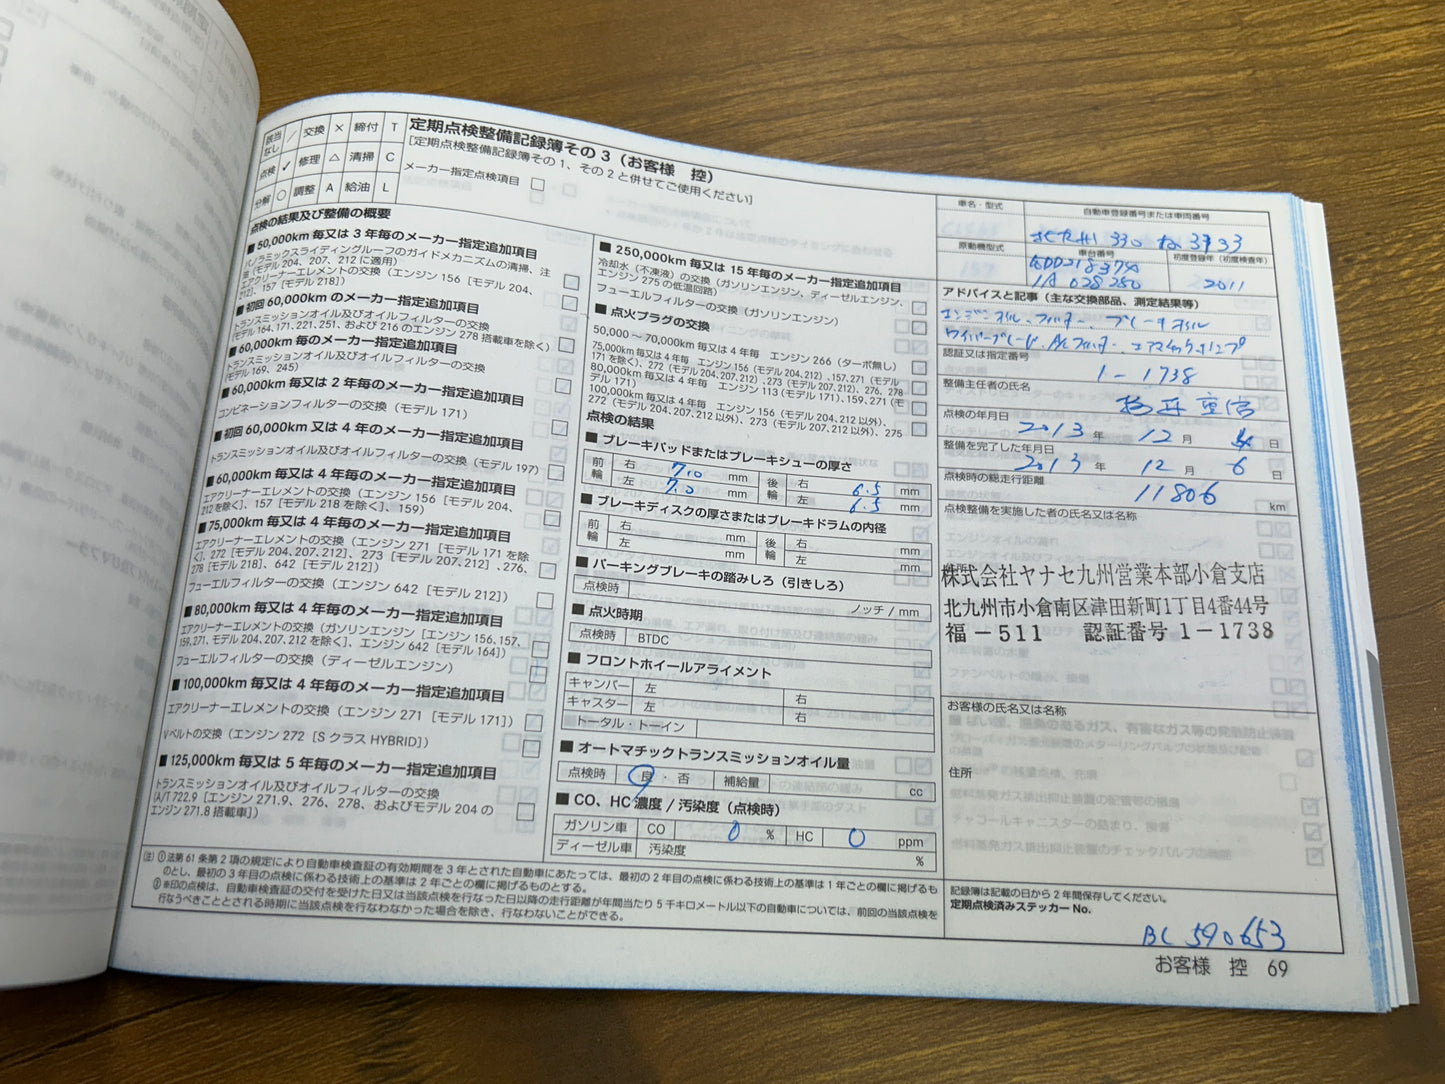 該当なし ／ 交換 × 締付 T
点検 ✓ 修理 △ 清掃 C
分解 ○ 調整 A 給油 L
定期点検整備記録簿その 3（お客様 控）
[定期点検整備記録簿その 1、その 2 と併せてご使用ください]
メーカー指定点検項目 □
点検の結果及び整備の概要
■ 50,000km 毎又は 3 年毎のメーカー指定追加項目
パノラミックスライディングルーフのガイドメカニズムの清掃、注
油（モデル 204、207、212 に適用）
エアクリーナーエレメントの交換（エンジン 156［モデル 204、
212］、157［モデル 218］）
■ 初回 60,000km のメーカー指定追加項目
トランスミッションオイル及びオイルフィルターの交換
（モデル 164、171、221、251、および 216 のエンジン 278 搭載車を除く）
■ 60,000km 毎のメーカー指定追加項目
トランスミッションオイル及びオイルフィルターの交換
（モデル 169、245）
■ 60,000km 毎又は 2 年毎のメーカー指定追加項目
コンビネーションフィルターの交換（モデル 171）
■ 初回 60,000km 又は 4 年毎のメーカー指定追加項目
トランスミッションオイル及びオイルフィルターの交換（モデル 197）
■ 60,000km 毎又は 4 年毎のメーカー指定追加項目
エアクリーナーエレメントの交換（エンジン 156［モデル 204、
212 を除く］、157［モデル 218 を除く］、159）
■ 75,000km 毎又は 4 年毎のメーカー指定追加項目
エアクリーナーエレメントの交換（エンジン 271［モデル 171 を除
く］、272［モデル 204、207、212］、273［モデル 207、212］、276、
278［モデル 218］、642［モデル 212］）
フューエルフィルターの交換（エンジン 642［モデル 212］）
■ 80,000km 毎又は 4 年毎のメーカー指定追加項目
エアクリーナーエレメントの交換（ガソリンエンジン［エンジン 156、157、
159、271、モデル 204、207、212 を除く］、エンジン 642［モデル 164］）
フューエルフィルターの交換（ディーゼルエンジン）
■ 100,000km 毎又は 4 年毎のメーカー指定追加項目
エアクリーナーエレメントの交換（エンジン 271［モデル 171］）
V ベルトの交換（エンジン 272［S クラス HYBRID］）
■ 125,000km 毎又は 5 年毎のメーカー指定追加項目
トランスミッションオイル及びオイルフィルターの交換
（A/T 722.9［エンジン 271.9、276、278、およびモデル 204 の
エンジン 271.8 搭載車］）
■ 250,000km 毎又は 15 年毎のメーカー指定追加項目
冷却水（不凍液）の交換（ガソリンエンジン、ディーゼルエンジン、
エンジン 275 の低温回路）
フューエルフィルターの交換（ガソリンエンジン）
■ 点火プラグの交換
50,000 ～ 70,000km 毎又は 4 年毎 エンジン 266（ターボ無し）
75,000km 毎又は 4 年毎 エンジン 156（モデル 204、207、212）、157、271（モデル
171 を除く）、272（モデル 204、207、212）、273（モデル 207、212）、276、278
80,000km 毎又は 4 年毎 エンジン 113（モデル 171）、159、271（モ
デル 171）
100,000km 毎又は 4 年毎 エンジン 156（モデル 204、212 以外）、
272（モデル 204、207、212 以外）、273（モデル 207、212 以外）、275
点検の結果
■ ブレーキパッドまたはブレーキシューの厚さ
前輪 右 7.0 mm 後輪 右 6.5 mm
左 7.0 mm 左 6.5 mm
■ ブレーキディスクの厚さまたはブレーキドラムの内径
前輪 右 mm 後輪 右 mm
左 mm 左 mm
■ パーキングブレーキの踏みしろ（引きしろ）
点検時 ノッチ / mm
■ 点火時期
点検時 BTDC
■ フロントホイールアライメント
キャンバー 左 右
キャスター 左 右
トータル・トーイン
■ オートマチックトランスミッションオイル量
点検時 良 ・ 否 補給量 cc
■ CO、HC 濃度 / 汚染度（点検時）
ガソリン車 CO 0 % HC 0 ppm
ディーゼル車 汚染度 %
車名・型式 自動車登録番号または車両番号
北九州 330 ね 3933
原動機型式 車台番号 初度登録年（初度検査年）
1A 028250 2011
アドバイスと記事（主な交換部品、測定結果等）
エンジンオイル、フィルター、ブレーキオイル
ワイパーブレード、ACフィルター、エアマチックポンプ
認証又は指定番号
1-1738
整備主任者の氏名
点検の年月日
2013 年 12 月 日
整備を完了した年月日
2013 年 12 月 6 日
点検時の総走行距離
11806 km
点検整備を実施した者の氏名又は名称
住所
株式会社ヤナセ九州営業本部小倉支店
北九州市小倉南区津田新町1丁目4番44号
福－511 認証番号 1－1738
お客様の氏名又は名称
住所
（注）① 法第 61 条第 2 項の規定により自動車検査証の有効期間を 3 年とされた自動車にあたっては、最初の 2 年目の点検に係わる技術上の基準は 1 年ごとの欄に掲げるも
のとし、最初の 3 年目の点検に係わる技術上の基準は 2 年ごとの欄に掲げるものとする。
② ※印の点検は、自動車検査証の交付を受けた日又は当該点検を行なった日以降の走行距離が年間当たり 5 千キロメートル以下の自動車については、前回の当該点検を
行なうべきこととされる時期に当該点検を行なわなかった場合を除き、行なわないことができる。
記録簿は記載の日から 2 年間保存してください。
定期点検済みステッカー No.
BC 590653
お客様 控 69